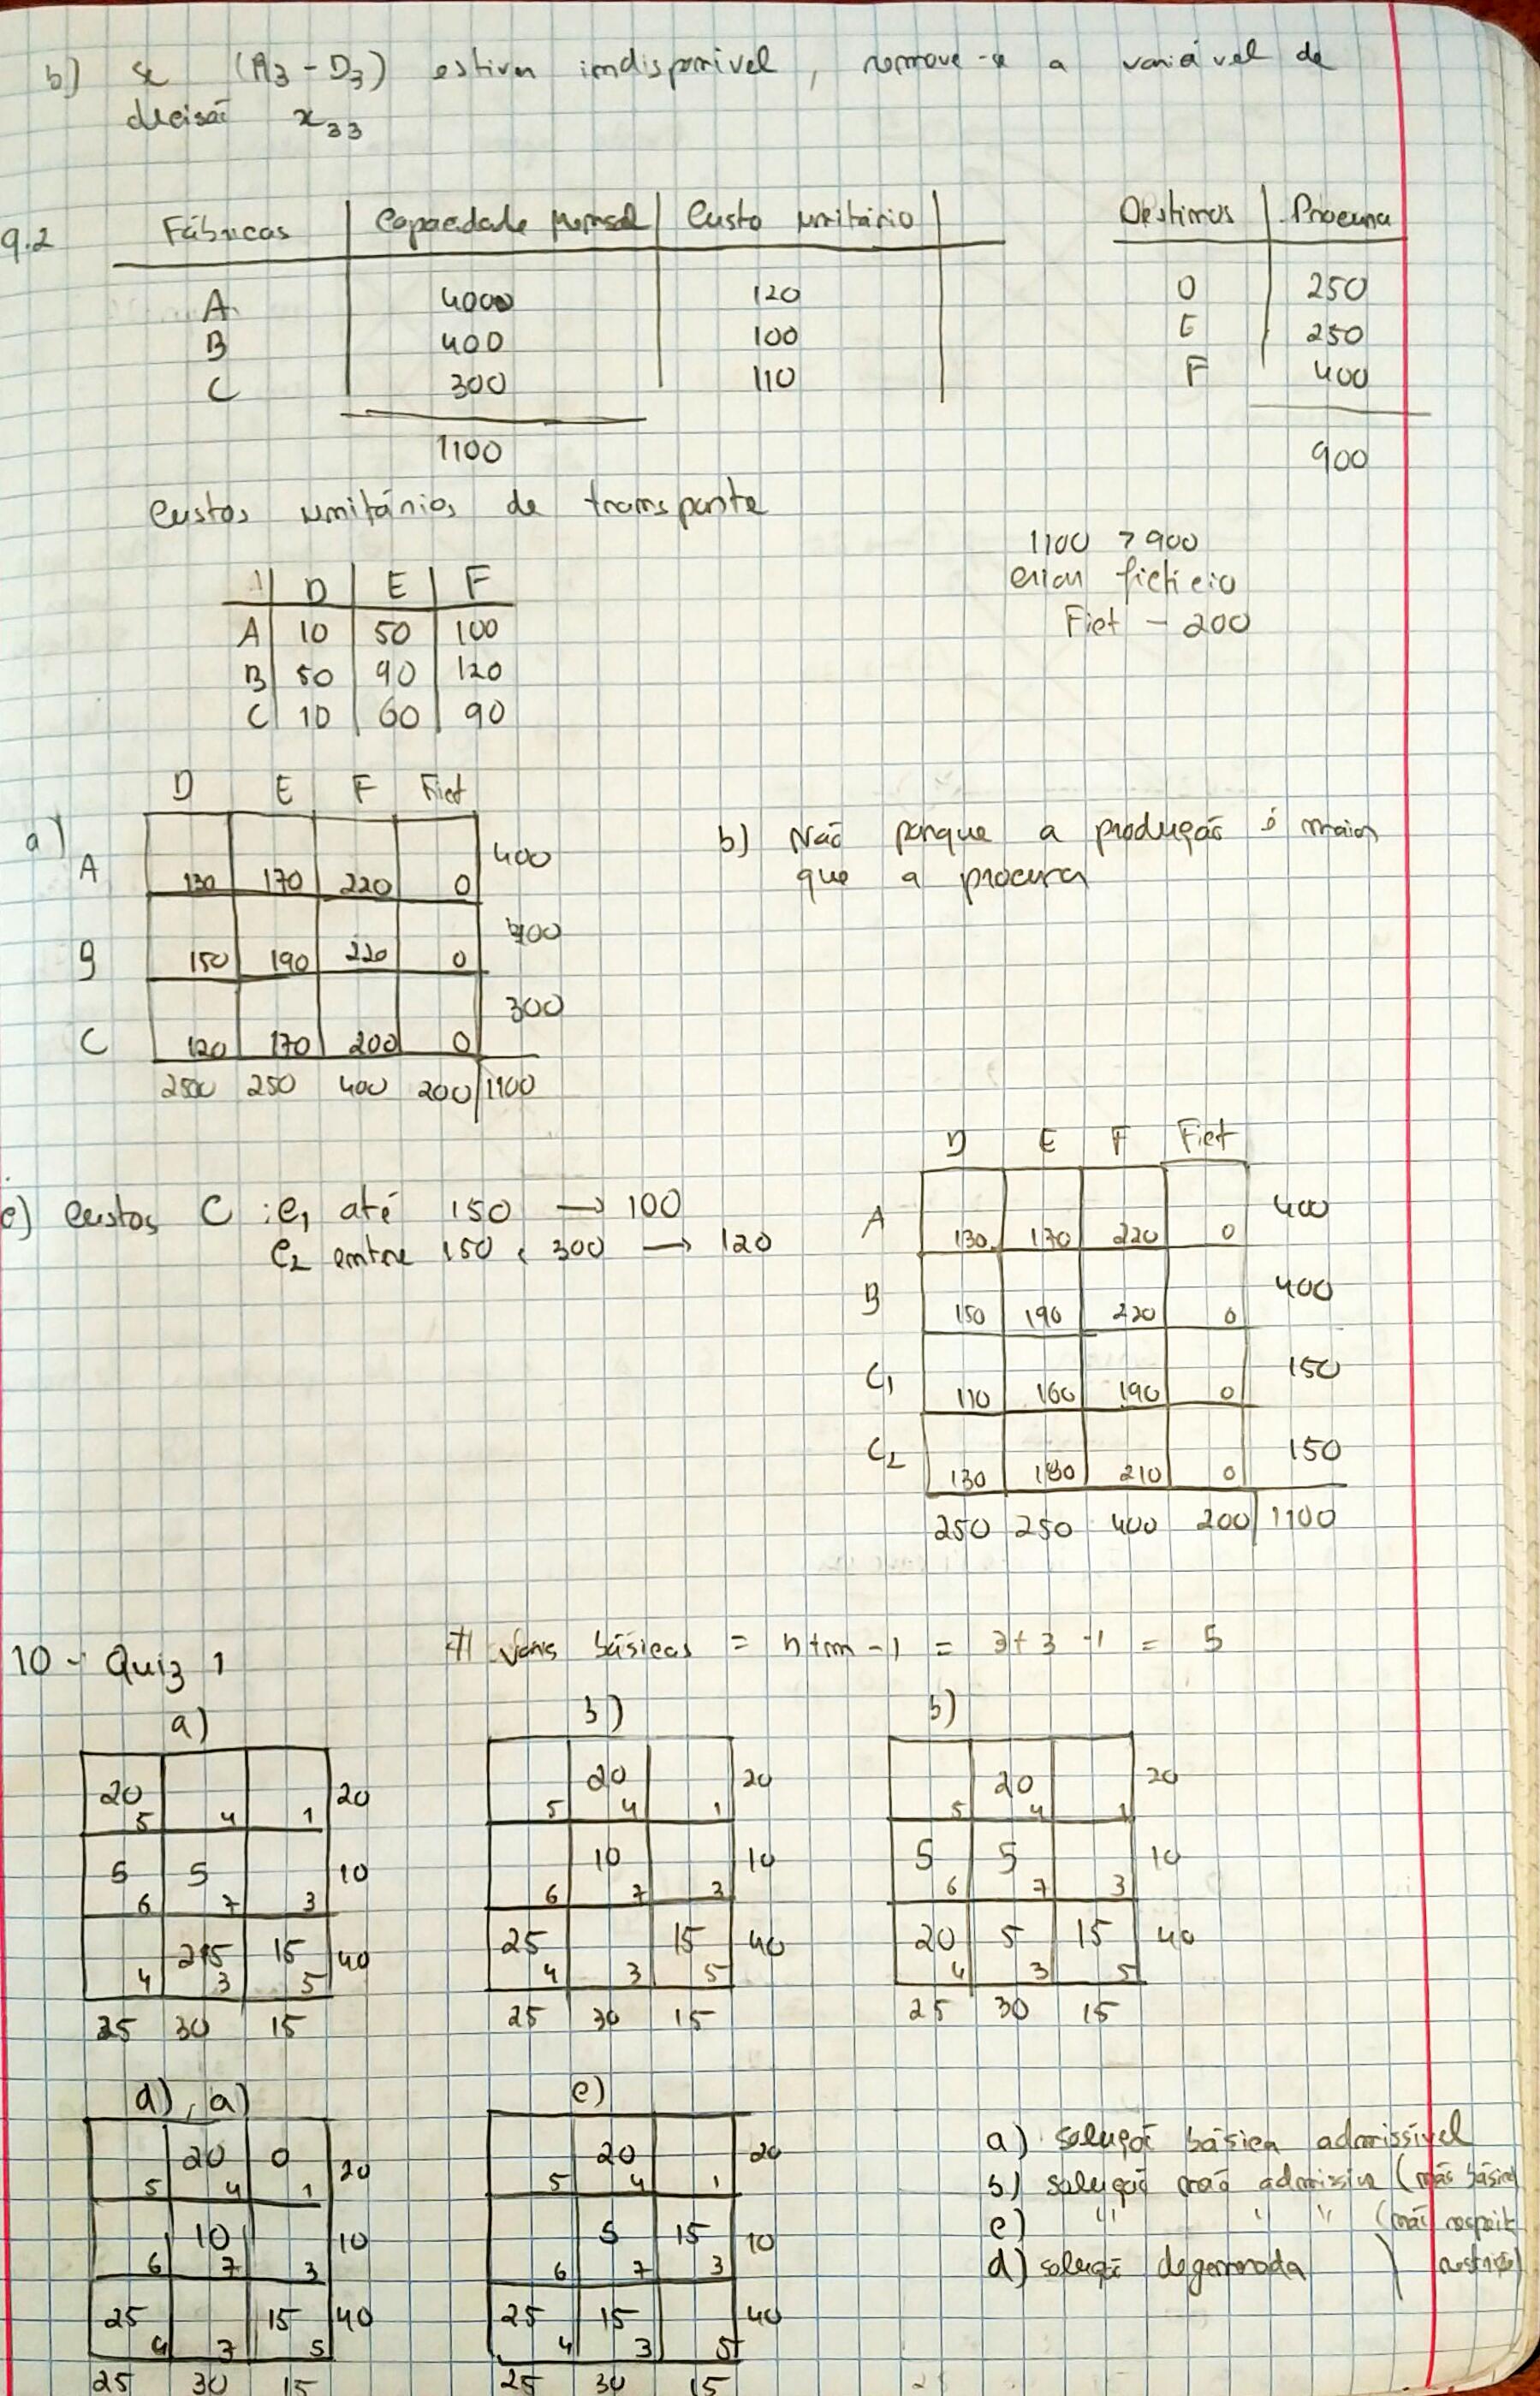 b) se (A3 - D3) estiver indisponível, remove-se a variável de
decisão x33
9.2 Fábricas | Capacidade Mensal | Custo unitário |
A 4000 120
B 400 100
C 300 110
1100
Destinos | Procura
D 250
E 250
F 400
900
Custos unitários de transporte
1100 > 900
criar fictício
Fict - 200
D E F
A 10 50 100
B 50 90 120
C 10 60 90
a)
D E F Fict
A 130 170 220 0 400
B 150 190 220 0 400
C 120 170 200 0 300
250 250 400 200 1100
b) Não porque a produção é maior
que a procura
c) Custos C : C1 até 150 → 100
C2 entre 150 e 300 → 120
D E F Fict
A 130 170 220 0 400
B 150 190 220 0 400
C1 110 160 190 0 150
C2 130 180 210 0 150
250 250 400 200 1100
10 - Quiz 1
# Vars básicas = n+m-1 = 3+3-1 = 5
a)
20 20
5 4 1
5 5 10
6 7 3
25 15 40
4 3 5
25 30 15
b)
20 20
5 4 1
10 10
6 7 3
25 15 40
4 3 5
25 30 15
b)
20 20
5 4 1
5 5 10
6 7 3
20 5 15 40
4 3 5
25 30 15
d), a)
20 0 20
5 4 1
10 10
6 7 3
25 15 40
4 7 5
25 30 15
c)
20 20
5 4 1
5 15 10
6 7 3
25 15 40
4 3 5
25 30 15
a) solução básica admissível
b) solução não admissív (não básica
c) " " " (não respeita
d) solução degenerada ) restrição)